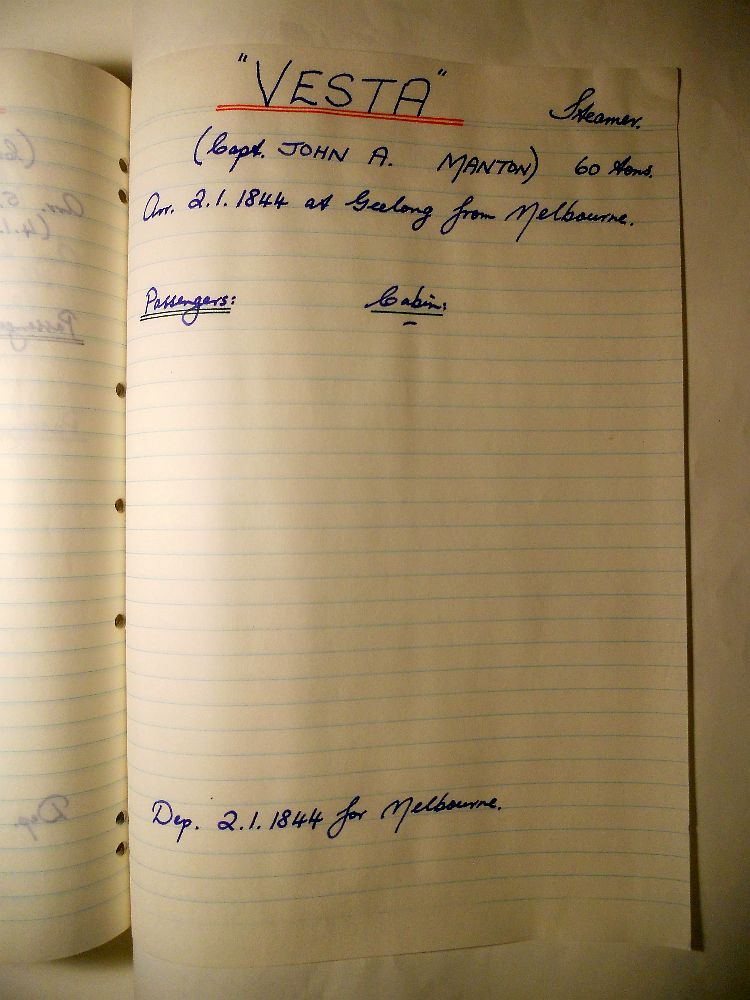 "VESTA"
Steamer.
(Capt. JOHN A. MANTON) 60 tons.
Arr. 2.1.1844 at Geelong from Melbourne.
Passengers: Cabin:
Dep. 2.1.1844 for Melbourne.